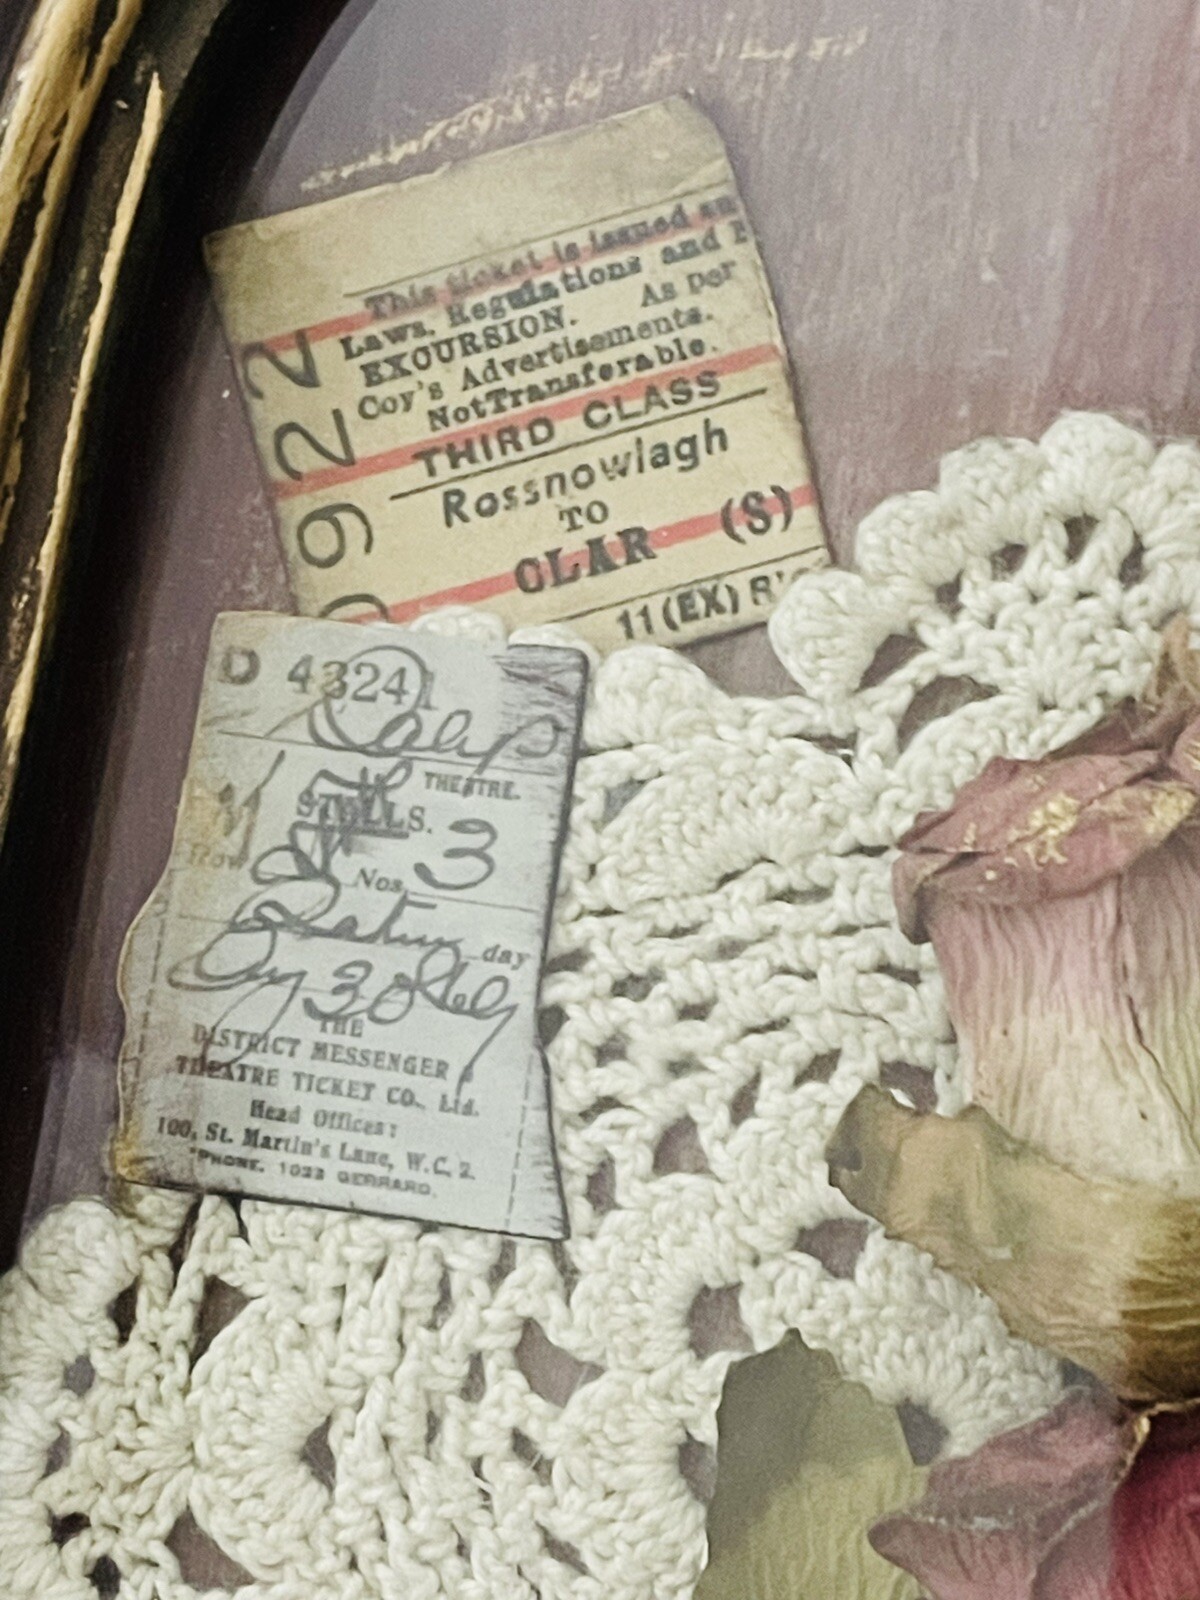 This ticket is issued
Laws, Regulations and
EXCURSION. As per
Coy's Advertisements.
NotTransferable.
THIRD CLASS
Rossnowlagh
TO
CLAR (S)
11(EX)
922
D 43241
THEATRE.
STALLS.
Row Nos. 3
Satur day
THE
DISTRICT MESSENGER &
THEATRE TICKET CO., Ltd.
Head Offices:
100, St. Martin's Lane, W.C. 2.
'PHONE. 1023 GERRARD.